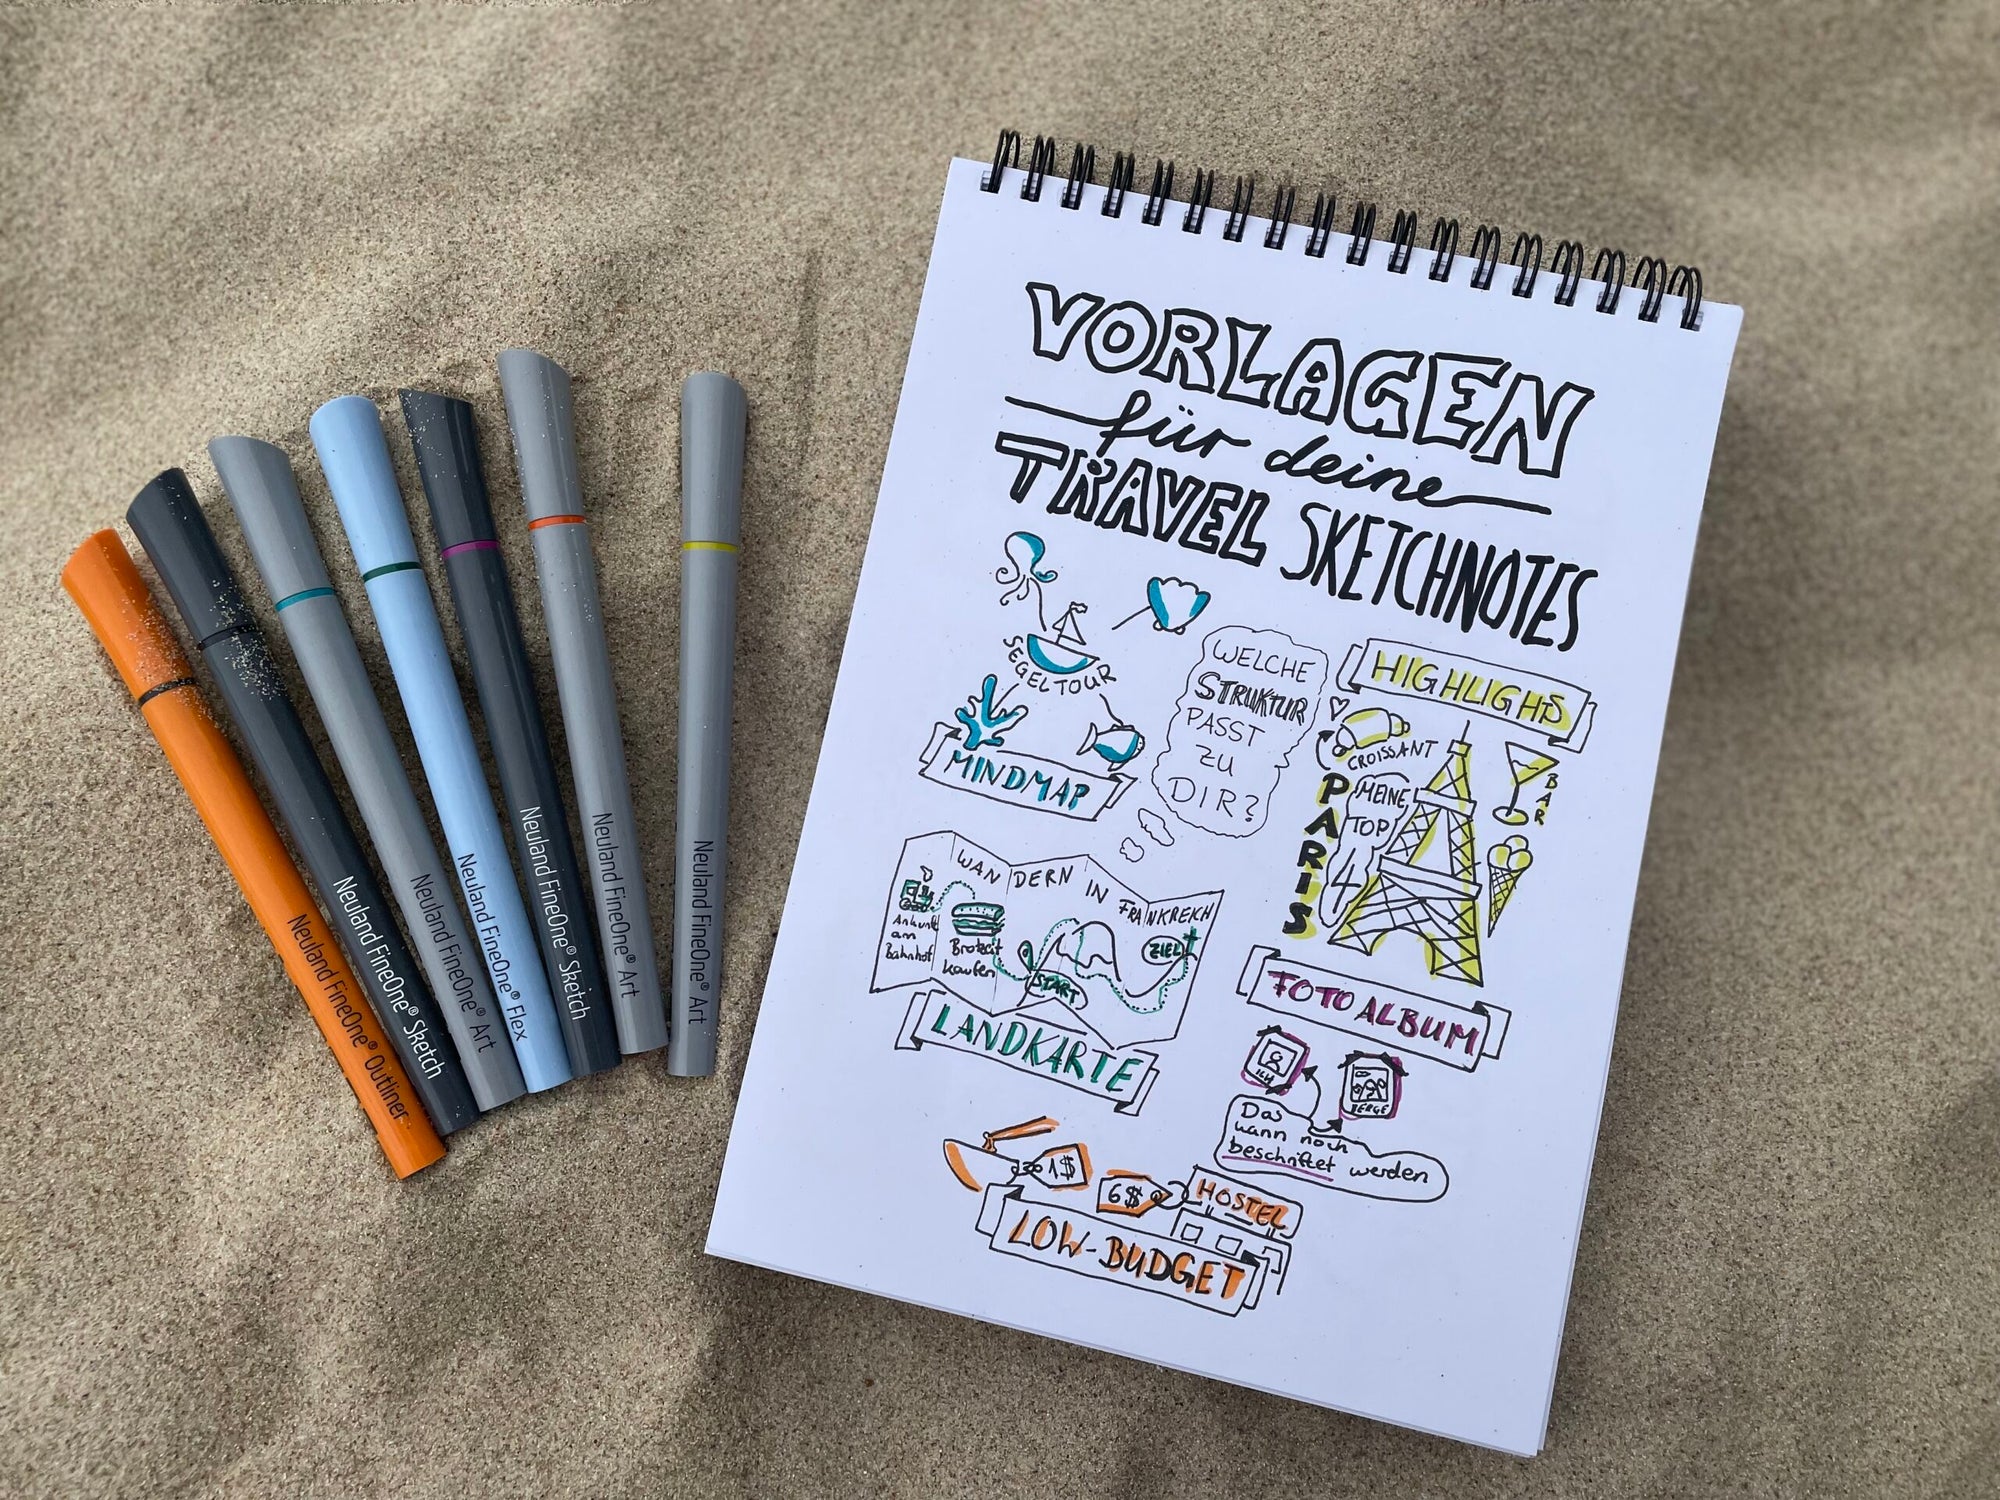 VORLAGEN
für deine
TRAVEL SKETCHNOTES
SEGELTOUR
MINDMAP
WELCHE
STRUKTUR
PASST
ZU
DIR?
HIGHLIGHTS
CROISSANT
PARIS
MEINE
TOP
4
BAR
WANDERN IN FRANKREICH
Ankunft
am
Bahnhof
Brotzeit
kaufen
START
ZIEL
LANDKARTE
FOTOALBUM
ICH
BERGE
Das
kann noch
beschriftet werden
1$
6$
HOSTEL
LOW-BUDGET
Neuland FineOne® Outliner
Neuland FineOne® Sketch
Neuland FineOne® Art
Neuland FineOne® Flex
Neuland FineOne® Sketch
Neuland FineOne® Art
Neuland FineOne® Art